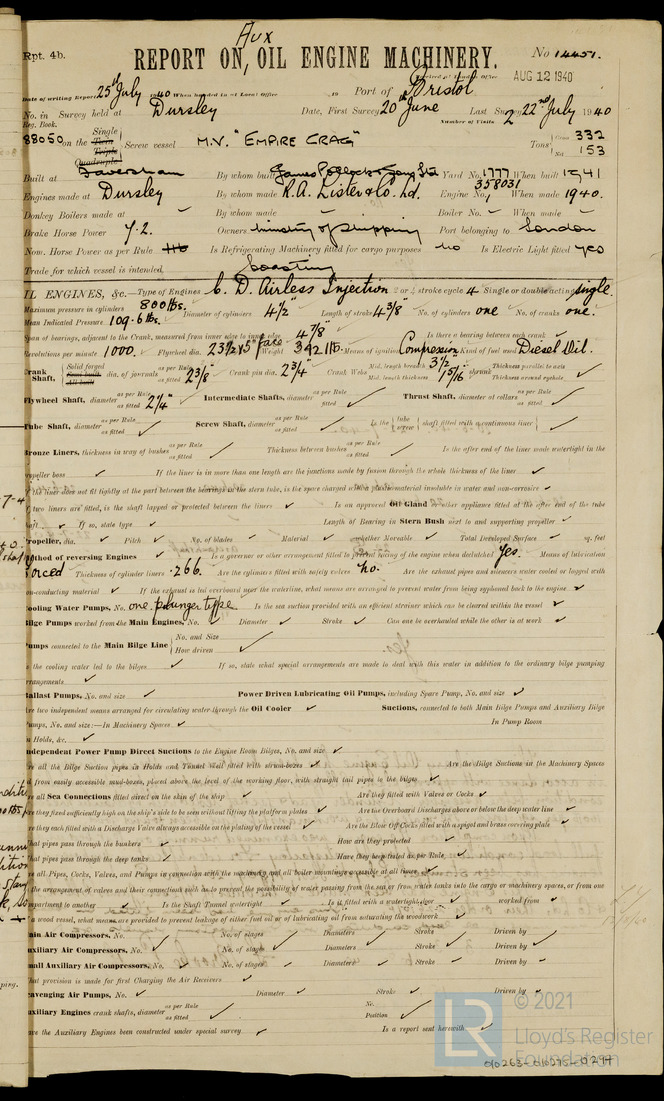 Rpt. 4b.
Aux
REPORT ON, OIL ENGINE MACHINERY.
No 14451.
AUG 12 1940
Date of writing Report 25th July 1940 When handed in at Local Office 19 Port of Bristol
No. in Survey held at Dursley Date, First Survey 20th June Last Survey 22nd July 1940
Reg. Book. Number of Visits 2
88050 on the Single Twin Triple Quadruple Screw vessel M.V. "EMPIRE CRAG" Tons Gross 332 Net 153
Built at Faversham By whom built James Pollock & Sons Ltd Yard No. 1777 When built 1941
Engines made at Dursley By whom made R.A. Lister & Co. Ltd. Engine No. 358031 When made 1940.
Donkey Boilers made at By whom made Boiler No. When made
Brake Horse Power 7.2. Owners Ministry of Shipping Port belonging to London
Nom. Horse Power as per Rule Is Refrigerating Machinery fitted for cargo purposes no Is Electric Light fitted yes
Trade for which vessel is intended. Coasting
IL ENGINES, &c.—Type of Engines C.D. Airless Injection 2 or 4 stroke cycle 4 Single or double acting single.
Maximum pressure in cylinders 800 lbs. Diameter of cylinders 4 1/2" Length of stroke 4 3/8" No. of cylinders one No. of cranks one.
Mean Indicated Pressure 109.6 lbs.
Span of bearings, adjacent to the Crank, measured from inner edge to inner edge 4 7/8" Is there a bearing between each crank
Revolutions per minute 1000. Flywheel dia. 23 1/2 x 5" face Weight 342 lbs. Means of ignition Compression Kind of fuel used Diesel Oil.
Crank Shaft, Solid forged Semi built All built dia. of journals as per Rule as fitted 2 3/8" Crank pin dia. 2 3/4" Mid. length breadth 3 1/2 Mid. length thickness 15/16 shrunk Thickness parallel to axis Thickness around eyehole
Flywheel Shaft, diameter as per Rule as fitted 2 1/4" Intermediate Shafts, diameter as per Rule as fitted Thrust Shaft, diameter at collars as per Rule as fitted
Tube Shaft, diameter as per Rule as fitted Screw Shaft, diameter as per Rule as fitted Is the tube screw shaft fitted with a continuous liner
Bronze Liners, thickness in way of bushes as per Rule as fitted Thickness between bushes as per Rule as fitted Is the after end of the liner made watertight in the
ropeller boss If the liner is in more than one length are the junctions made by fusion through the whole length of the liner
the liner does not fit tightly at the part between the bearings in the stern tube, is the space charged with a plastic material insoluble in water and non-corrosive
two liners are fitted, is the shaft lapped or protected between the liners Is an approved Oil Gland or other appliance fitted at the after end of the tube
haft If so, state type Length of Bearing in Stern Bush next to and supporting propeller
Propeller, dia. Pitch No. of blades Material whether Moveable Total Developed Surface sq. feet
Method of reversing Engines Is a governor or other arrangement fitted to prevent racing of the engine when declutched Yes. Means of lubrication
Forced Thickness of cylinder liners .266. Are the cylinders fitted with safety valves no. Are the exhaust pipes and silencers water cooled or lagged with
on-conducting material If the exhaust is led overboard near the waterline, what means are arranged to prevent water from being syphoned back to the engine
Cooling Water Pumps, No. one plunger type. Is the sea suction provided with an efficient strainer which can be cleared within the vessel
Bilge Pumps worked from the Main Engines, No. Diameter Stroke Can one be overhauled while the other is at work
Pumps connected to the Main Bilge Line No. and Size How driven
s the cooling water led to the bilges If so, state what special arrangements are made to deal with this water in addition to the ordinary bilge pumping
rrangements
Ballast Pumps, No. and size Power Driven Lubricating Oil Pumps, including Spare Pump, No. and size
re two independent means arranged for circulating water through the Oil Cooler Suctions, connected to both Main Bilge Pumps and Auxiliary Bilge
umps, No. and size:—In Machinery Spaces In Pump Room
n Holds, &c.
ndependent Power Pump Direct Suctions to the Engine Room Bilges, No. and size
re all the Bilge Suction pipes in Holds and Tunnel Well fitted with strum-boxes Are the Bilge Suctions in the Machinery Spaces
d from easily accessible mud-boxes, placed above the level of the working floor, with straight tail pipes to the bilges
re all Sea Connections fitted direct on the skin of the ship Are they fitted with Valves or Cocks
re they fixed sufficiently high on the ship's side to be seen without lifting the platform plates Are the Overboard Discharges above or below the deep water line
re they each fitted with a Discharge Valve always accessible on the plating of the vessel Are the Blow Off Cocks fitted with a spigot and brass covering plate
hat pipes pass through the bunkers How are they protected
hat pipes pass through the deep tanks Have they been tested as per Rule
re all Pipes, Cocks, Valves, and Pumps in connection with the machinery and all boiler mountings accessible at all times
the arrangement of valves and their connections such as to prevent the possibility of water passing from the sea or from water tanks into the cargo or machinery spaces, or from one
ompartment to another Is the Shaft Tunnel watertight Is it fitted with a watertight door worked from
a wood vessel, what means are provided to prevent leakage of either fuel oil or of lubricating oil from saturating the woodwork
ain Air Compressors, No. No. of stages Diameters Stroke Driven by
uxiliary Air Compressors, No. No. of stages Diameters Stroke Driven by
mall Auxiliary Air Compressors, No. No. of stages Diameters Stroke Driven by
hat provision is made for first Charging the Air Receivers
cavenging Air Pumps, No. Diameter Stroke Driven by
uxiliary Engines crank shafts, diameter as per Rule as fitted No. Position
ave the Auxiliary Engines been constructed under special survey Is a report sent herewith
LR © 2021
Lloyd's Register
Foundation
010263-010275-0294